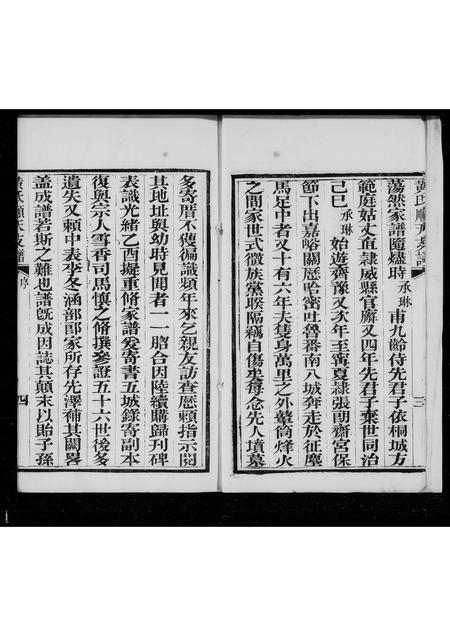 黃氏順天支譜
三
蕩然家譜隨燼時承琳甫九齡侍先君子依桐城方
範庭姑丈直隸威縣官廨又四年先君子棄世同治
己巳承琳始遊齊豫又次年至寗夏隸張朗齋宮保
節下出嘉峪關歷哈密吐魯番南八城奔走於征塵
馬足中者又十有六年夫隻身萬里之外葷筒烽火
之間家世式微族黨睽隔竊自傷矣每念先人墳墓
多寄厝不獲徧識頻年來乞親友訪查應頼指示閱
其地址與幼時見聞者一一脗合因陸續購歸刋碑
表識光緒乙酉擬重脩家譜爰寄書五城錄寄副本
復與宗人雪香司馬慎之脩撰參證五十六世後多
遺失又賴中表李冬涵部郎家所存先澤補其闕畧
盖成譜若斯之難也譜旣成因誌其顛末以貽子孫
黃氏順天支譜
序
四